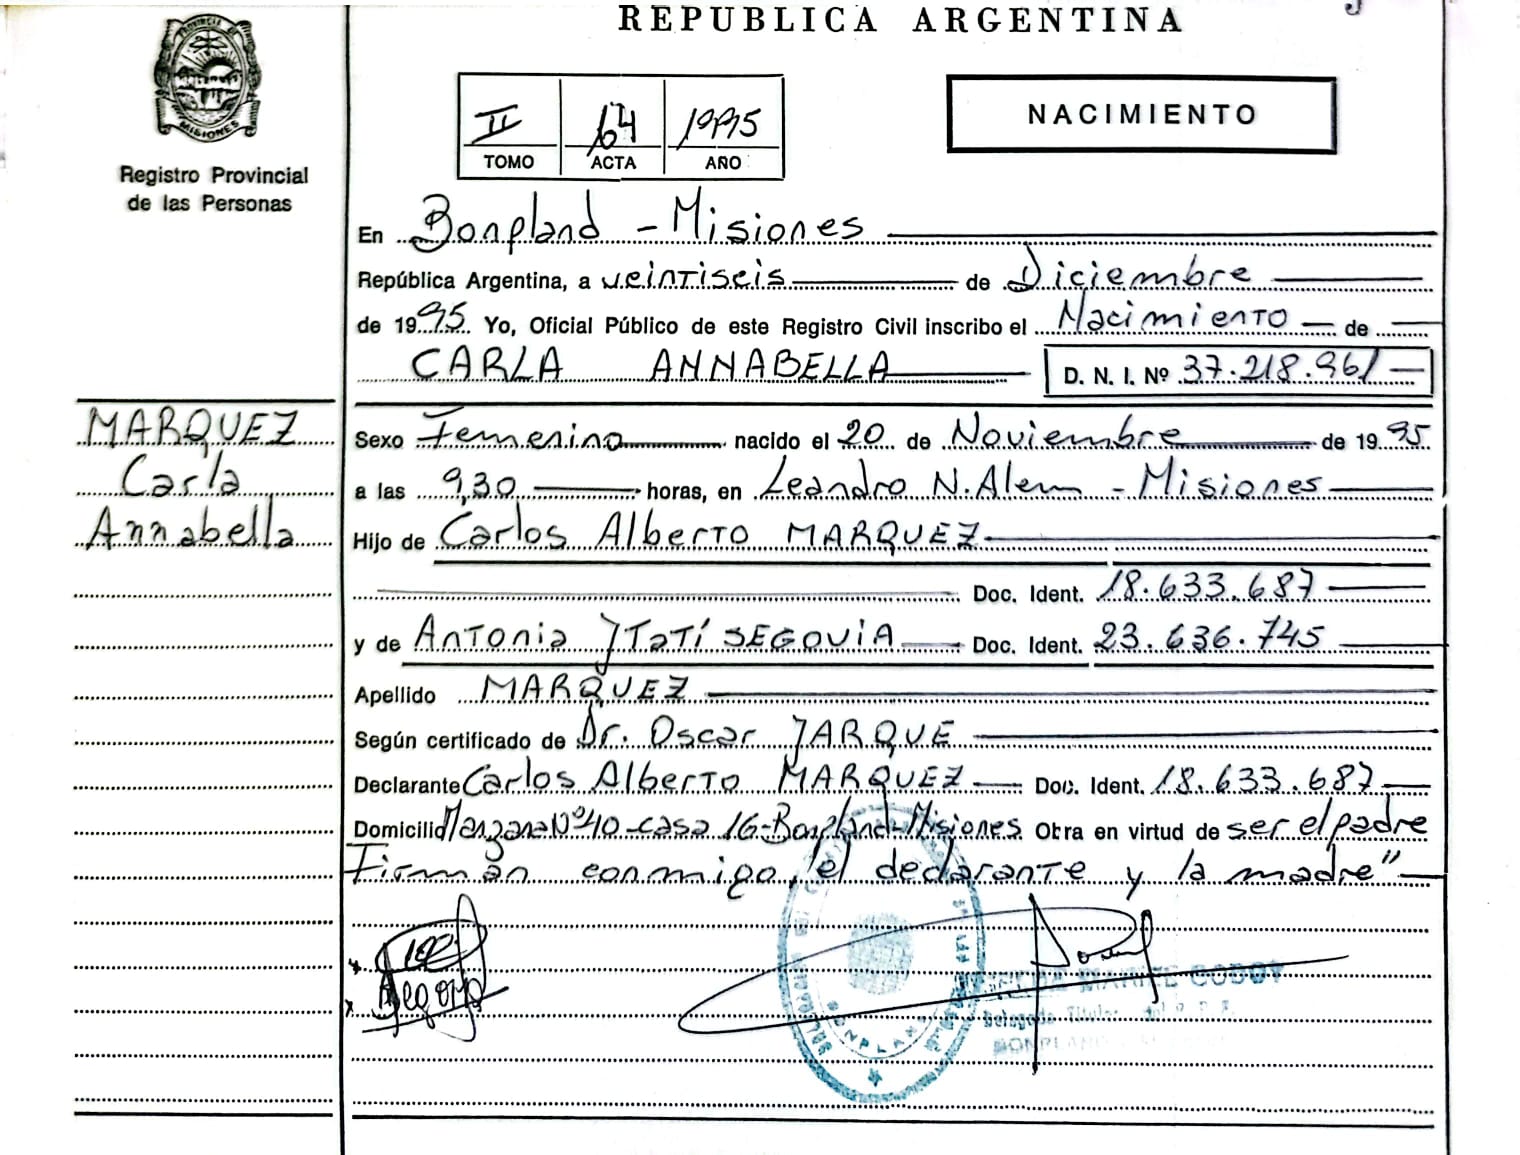 REPUBLICA ARGENTINA
PROVINCIA
MISIONES
Registro Provincial
de las Personas
II 64 1995
TOMO ACTA AÑO
NACIMIENTO
En Bonpland - Misiones
República Argentina, a veintiseis de Diciembre
de 1995 Yo, Oficial Público de este Registro Civil inscribo el Nacimiento de
CARLA ANNABELLA D. N. I. Nº 37.218.961
MARQUEZ
Carla
Annabella
Sexo Femenino nacido el 20 de Noviembre de 1995
a las 9,30 horas, en Leandro N. Alem - Misiones
Hijo de Carlos Alberto MARQUEZ
Doc. Ident. 18.633.687
y de Antonia Itatí SEGOVIA Doc. Ident. 23.636.745
Apellido MARQUEZ
Según certificado de Dr. Oscar JARQUE
Declarante Carlos Alberto MARQUEZ Doc. Ident. 18.633.687
Domicilio Manzana Nº 40 - casa 16 - Bonpland - Misiones Obra en virtud de ser el padre
Firman conmigo, el declarante y la madre"
Delegada Titular
BONPLAND